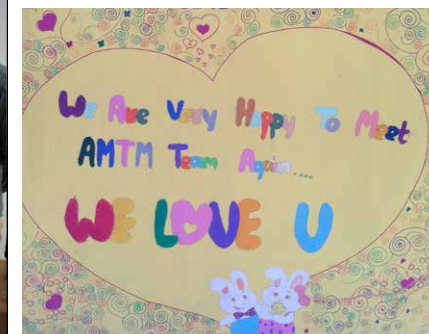 We Are Very Happy To Meet
AMTM Team Again....
WE LOVE U